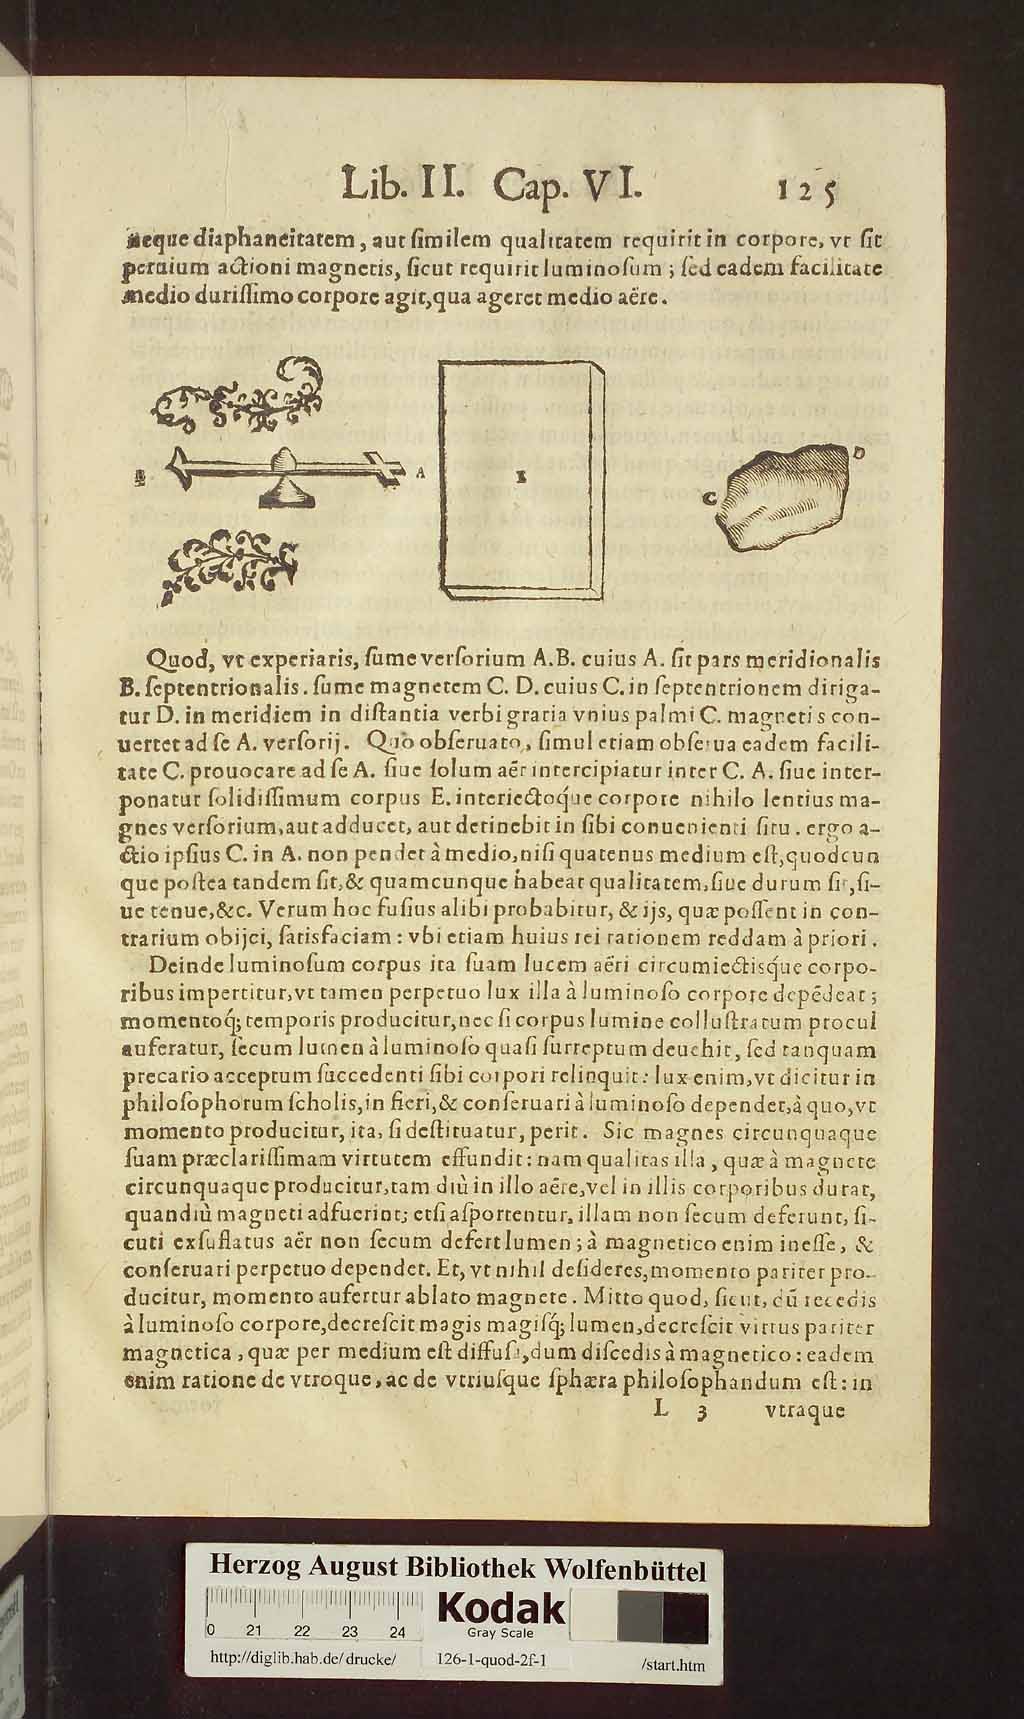 Lib. II. Cap. VI. 125
neque diaphaneitatem, aut ſimilem qualitatem requirit in corpore, vt ſit
peruium actioni magnetis, ſicut requirit luminoſum; ſed eadem facilitate
medio duriſſimo corpore agit, qua ageret medio aëre.
B A E C D
Quod, vt experiaris, ſume verſorium A.B. cuius A. ſit pars meridionalis
B. ſeptentrionalis. ſume magnetem C. D. cuius C. in ſeptentrionem diriga-
tur D. in meridiem in diſtantia verbi gratia vnius palmi C. magnetis con-
uertet ad ſe A. verſorij. Quo obſeruato, ſimul etiam obſerua eadem facili-
tate C. prouocare ad ſe A. ſiue ſolum aër intercipiatur inter C. A. ſiue inter-
ponatur ſolidiſſimum corpus E. interiectoq́ue corpore nihilo lentius ma-
gnes verſorium, aut adducet, aut detinebit in ſibi conuenienti ſitu. ergo a-
ctio ipſius C. in A. non pendet à medio, niſi quatenus medium eſt, quodcun
que poſtea tandem ſit, & quamcunque habeat qualitatem, ſiue durum ſit, ſi-
ue tenue, &c. Verum hoc fuſius alibi probabitur, & ijs, quæ poſſent in con-
trarium obijci, ſatisfaciam: vbi etiam huius rei rationem reddam à priori.
Deinde luminoſum corpus ita ſuam lucem aëri circumiectisq́ue corpo-
ribus impertitur, vt tamen perpetuo lux illa à luminoſo corpore depēdeat;
momentoq́; temporis producitur, nec ſi corpus lumine colluſtratum procul
auferatur, ſecum lumen à luminoſo quaſi ſurreptum deuehit, ſed tanquam
precario acceptum ſuccedenti ſibi corpori relinquit: lux enim, vt dicitur in
philoſophorum ſcholis, in fieri, & conſeruari à luminoſo dependet, à quo, vt
momento producitur, ita, ſi deſtituatur, perit. Sic magnes circunquaque
ſuam præclariſſimam virtutem effundit: nam qualitas illa, quæ à magnete
circunquaque producitur, tam diù in illo aëre, vel in illis corporibus durat,
quandiù magneti adfuerint; etſi aſportentur, illam non ſecum deferunt, ſi-
cuti exſuflatus aër non ſecum defert lumen; à magnetico enim ineſſe, &
conſeruari perpetuo dependet. Et, vt nihil deſideres, momento pariter pro-
ducitur, momento aufertur ablato magnete. Mitto quod, ſicut, cū recedis
à luminoſo corpore, decreſcit magis magiſq́; lumen, decreſcit virtus pariter
magnetica, quæ per medium eſt diffuſa, dum diſcedis à magnetico: eadem
enim ratione de vtroque, ac de vtriuſque ſphæra philoſophandum eſt: in
L 3 vtraque
Herzog August Bibliothek Wolfenbüttel
0 21 22 23 24
Kodak
Gray Scale
http://diglib.hab.de/drucke/ 126-1-quod-2f-1 /start.htm